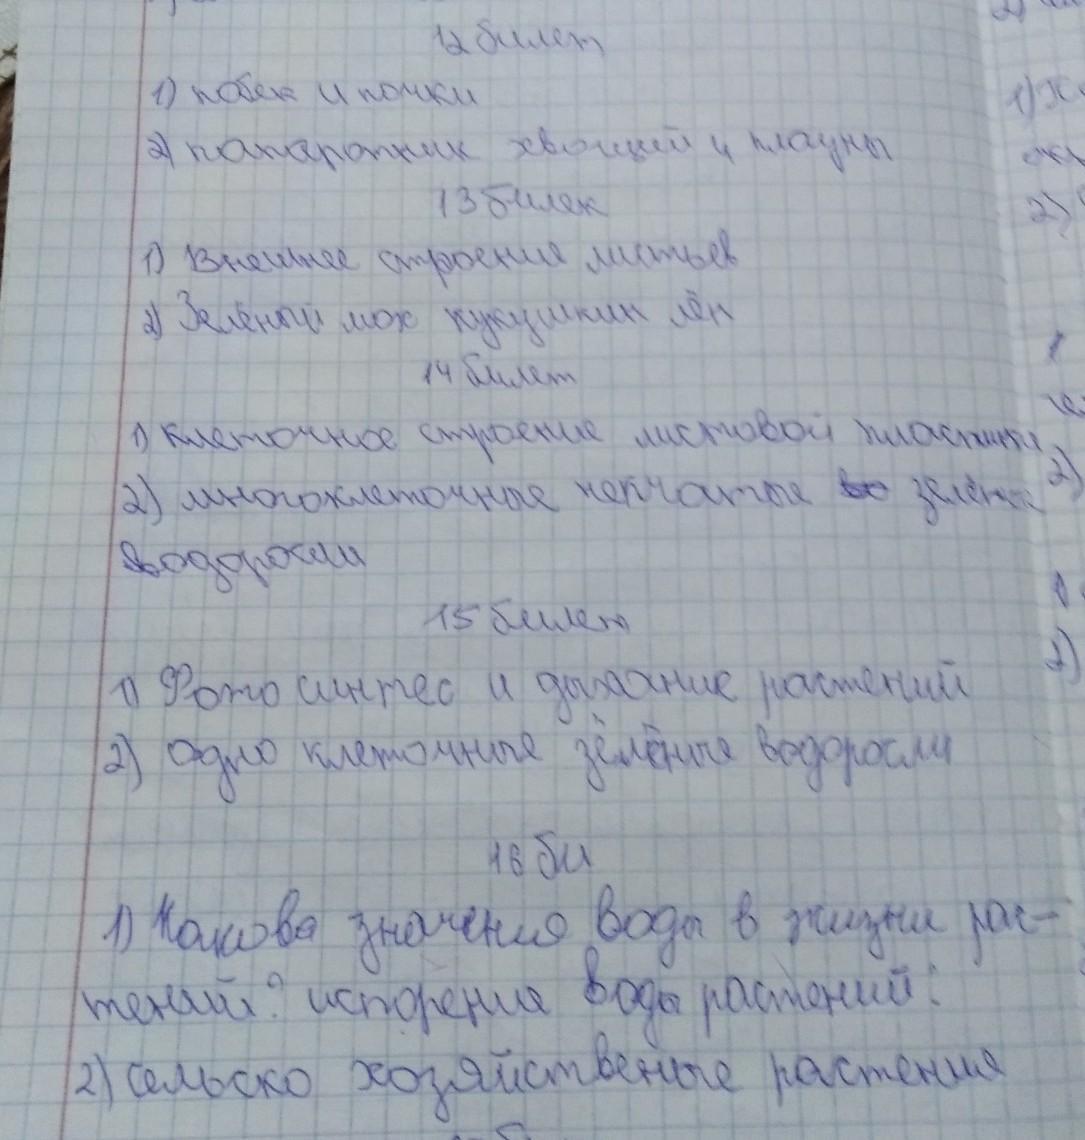 12 билет
1) побек и почки
2) папаратник хвощей и плауны
13 билек
1) Внешнее строение листьев
2) Зелёный мох кукушкин лён
14 билет
1) клеточное строение листовой пластинки
2) многоклеточные нетчатые зелёные
водоросли
15 билет
1) Фото синтес и дыхание растений
2) Одно клеточные зелёные водоросли
16 би
1) Какова значения воды в жизни рас-
тений? испорения воды растений:
2) сельско хозяйственые растения